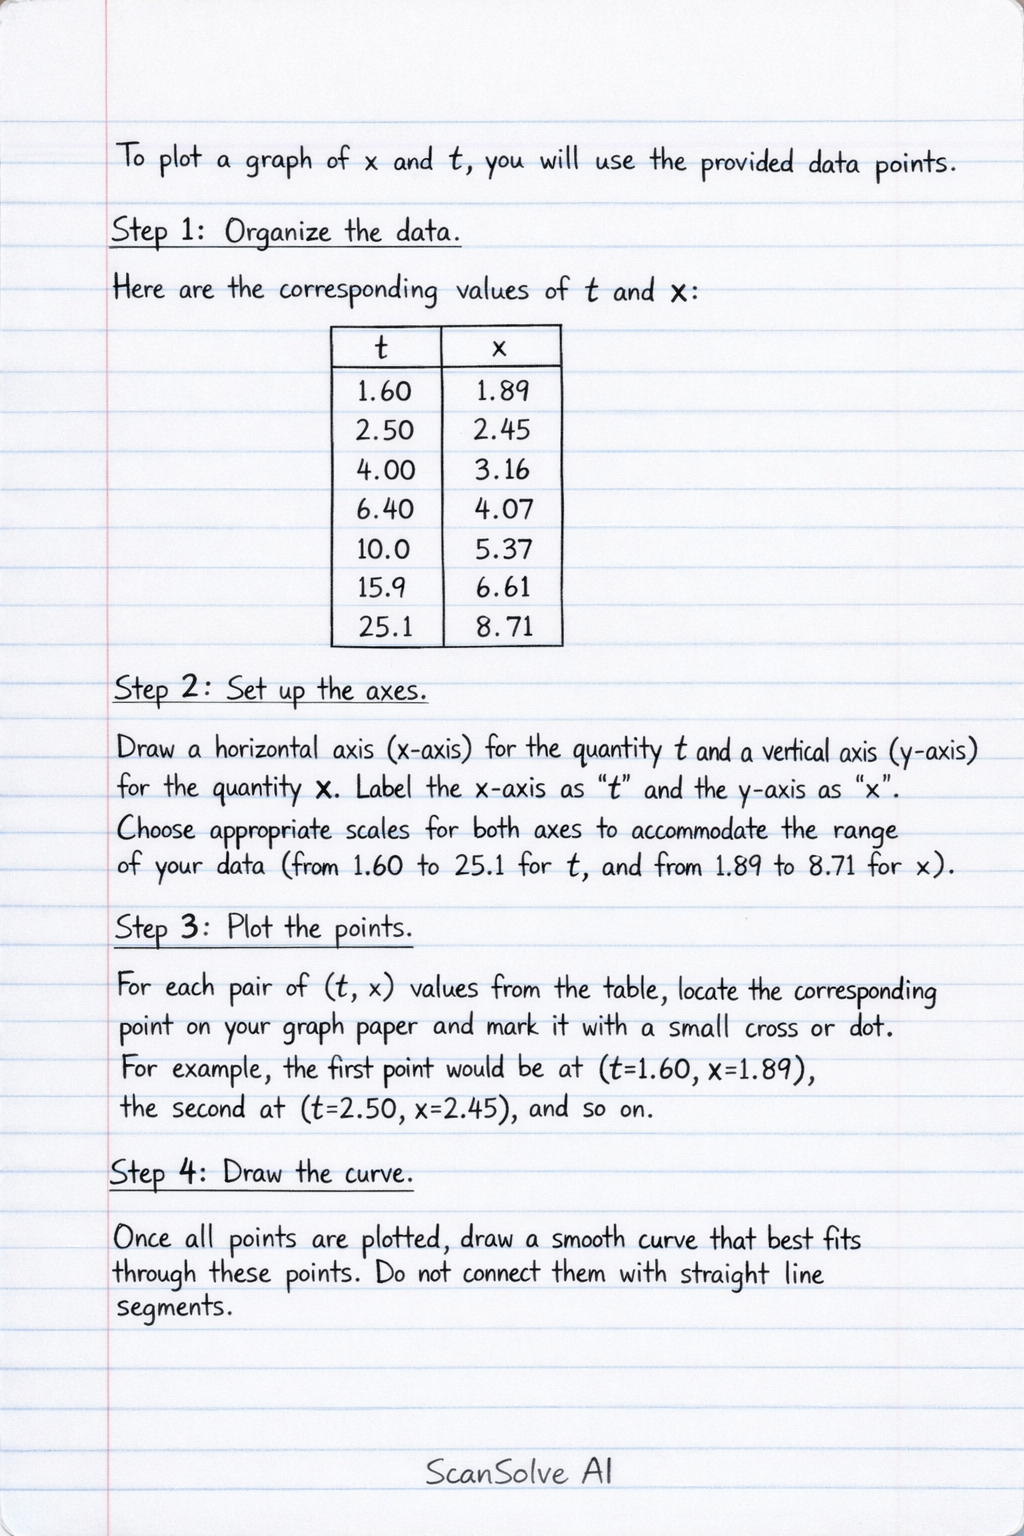 To plot a graph of x and t, you will use the provided data points.
Step 1: Organize the data.
Here are the corresponding values of t and x:
t x
1.60 1.89
2.50 2.45
4.00 3.16
6.40 4.07
10.0 5.37
15.9 6.61
25.1 8.71
Step 2: Set up the axes.
Draw a horizontal axis (x-axis) for the quantity t and a vertical axis (y-axis)
for the quantity x. Label the x-axis as “t” and the y-axis as “x”.
Choose appropriate scales for both axes to accommodate the range
of your data (from 1.60 to 25.1 for t, and from 1.89 to 8.71 for x).
Step 3: Plot the points.
For each pair of (t, x) values from the table, locate the corresponding
point on your graph paper and mark it with a small cross or dot.
For example, the first point would be at (t=1.60, x=1.89),
the second at (t=2.50, x=2.45), and so on.
Step 4: Draw the curve.
Once all points are plotted, draw a smooth curve that best fits
through these points. Do not connect them with straight line
segments.
ScanSolve AI